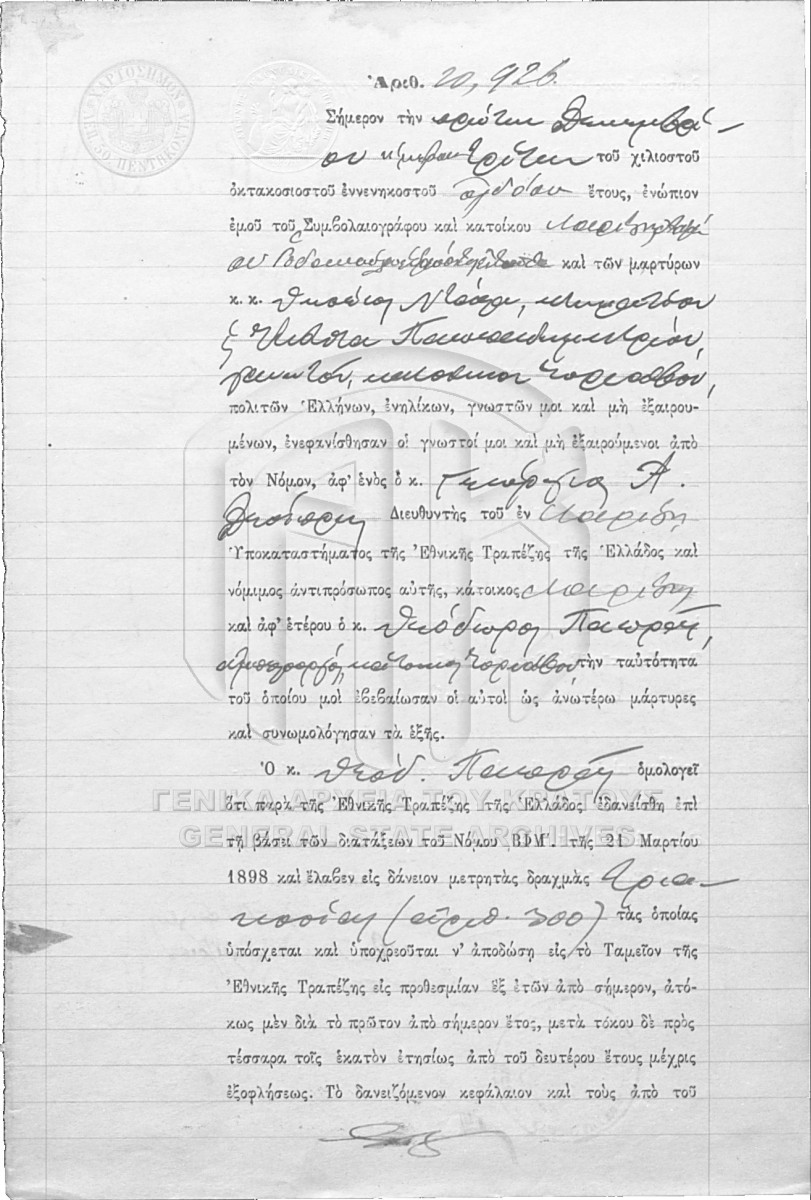 ΧΑΡΤΟΣΗΜΟΝ
ΛΕΠ. 50 ΠΕΝΤΗΚΟΝΤΑ
Ἀριθ. 20,926.
Σήμερον τὴν πρώτην Δεκεμβρί-
ου ἡμέραν Τρίτην τοῦ χιλιοστοῦ
ὀκτακοσιοστοῦ ἐννενηκοστοῦ ὀγδόου ἔτους, ἐνώπιον
ἐμοῦ τοῦ Συμβολαιογράφου καὶ κατοίκου
καὶ τῶν μαρτύρων
κ. κ.
πολιτῶν Ἑλλήνων, ἐνηλίκων, γνωστῶν μοι καὶ μὴ ἐξαιρου-
μένων, ἐνεφανίσθησαν οἱ γνωστοί μοι καὶ μὴ ἐξαιρούμενοι ἀπὸ
τὸν Νόμον, ἀφ' ἑνὸς ὁ κ. Γεώργιος Α.
Διευθυντὴς τοῦ ἐν Λαρίσῃ
Ὑποκαταστήματος τῆς Ἐθνικῆς Τραπέζης τῆς Ἑλλάδος καὶ
νόμιμος ἀντιπρόσωπος αὐτῆς, κάτοικος Λαρίσης
καὶ ἀφ' ἑτέρου ὁ κ. Θεόδωρος
κάτοικος τὴν ταὐτότητα
τοῦ ὁποίου μοὶ ἐβεβαίωσαν οἱ αὐτοὶ ὡς ἀνωτέρω μάρτυρες
καὶ συνωμολόγησαν τὰ ἑξῆς.
Ὁ κ. Θεόδ. ὁμολογεῖ
ΓΕΝΙΚΑ ΑΡΧΕΙΑ ΤΟΥ ΚΡΑΤΟΥΣ
ὅτι παρὰ τῆς Ἐθνικῆς Τραπέζης τῆς Ἑλλάδος ἐδανείσθη ἐπὶ
GENERAL STATE ARCHIVES
τῇ βάσει τῶν διατάξεων τοῦ Νόμου ΒΦΜ'. τῆς 21 Μαρτίου
1898 καὶ ἔλαβεν εἰς δάνειον μετρητὰς δραχμὰς τρια-
κοσίας (ἀριθ. 300) τὰς ὁποίας
ὑπόσχεται καὶ ὑποχρεοῦται ν' ἀποδώσῃ εἰς τὸ Ταμεῖον τῆς
Ἐθνικῆς Τραπέζης εἰς προθεσμίαν ἓξ ἐτῶν ἀπὸ σήμερον, ἀτό-
κως μὲν διὰ τὸ πρῶτον ἀπὸ σήμερον ἔτος, μετὰ τόκου δὲ πρὸς
τέσσαρα τοῖς ἑκατὸν ἐτησίως ἀπὸ τοῦ δευτέρου ἔτους μέχρις
ἐξοφλήσεως. Τὸ δανειζόμενον κεφάλαιον καὶ τοὺς ἀπὸ τοῦ